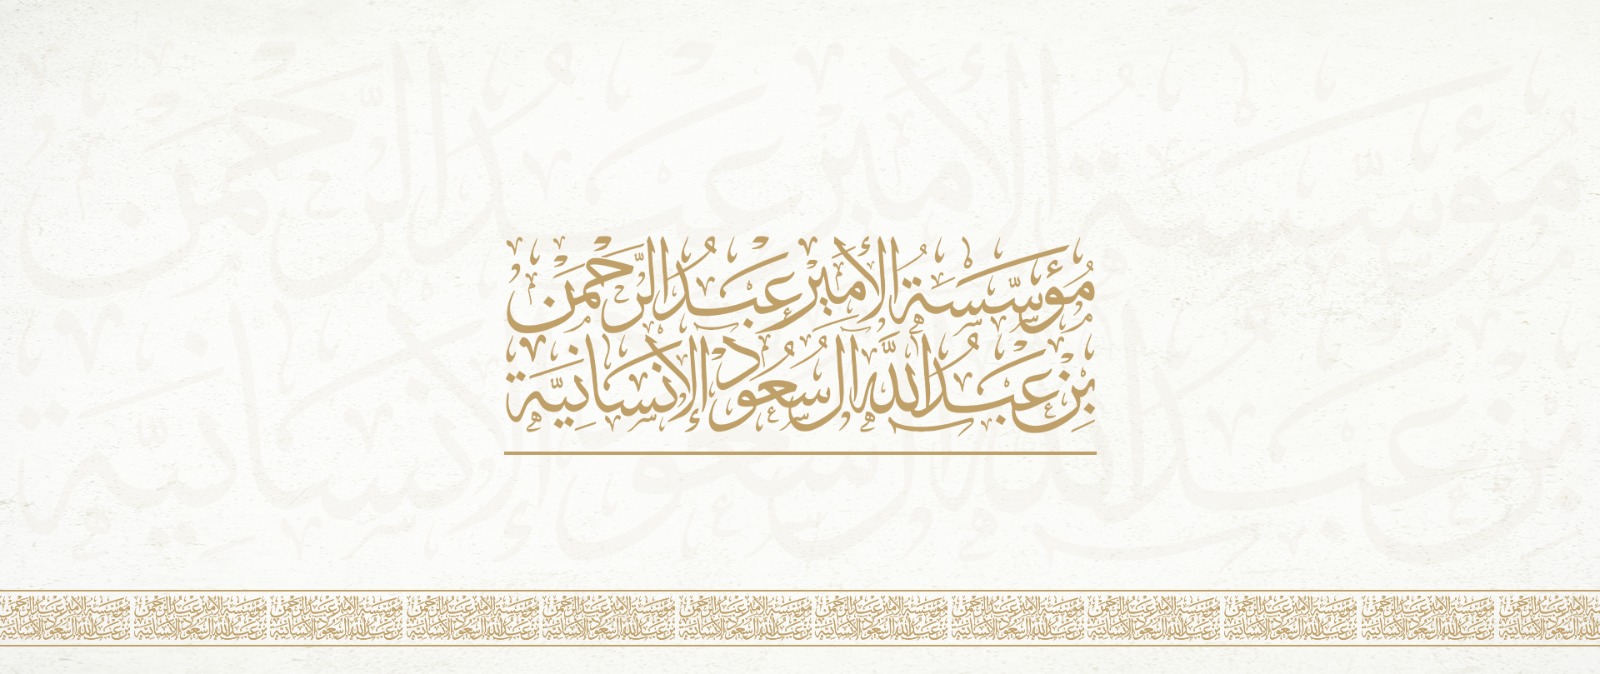 مؤسسة الأمير عبد الرحمن
بن عبد الله آل سعود الإنسانية